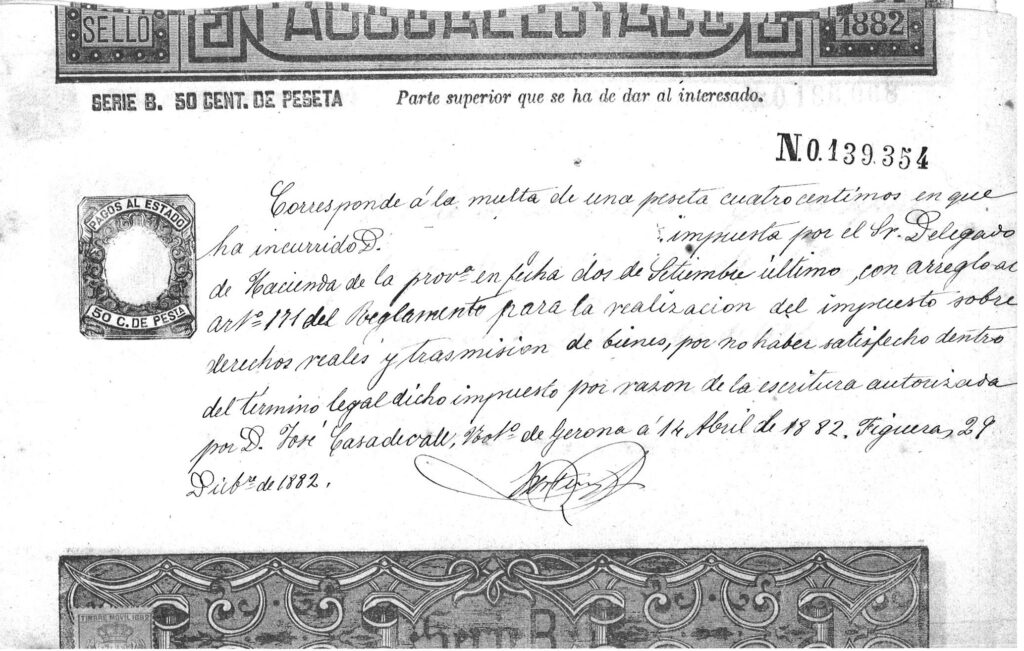 SELLO
PAGOS AL ESTADO
1882
SERIE B. 50 CENT. DE PESETA
Parte superior que se ha de dar al interesado.
N.0.139.354
PAGOS AL ESTADO
50 C. DE PESTA
Corresponde á la multa de una peseta cuatro centimos en que
ha incurrido D. impuesta por el Sr. Delegado
de Hacienda de la provª en fecha dos de Setiembre último, con arreglo al
artº 171 del Reglamento para la realizacion del impuesto sobre
derechos reales y trasmision de bienes, por no haber satisfecho dentro
del término legal dicho impuesto por razon de la escritura autorizada
por D. José Casadevall, Notº de Gerona á 14 Abril de 1882. Figueras 29
Dicbre de 1882.
TIMBRE MOVIL 1882
Serie B